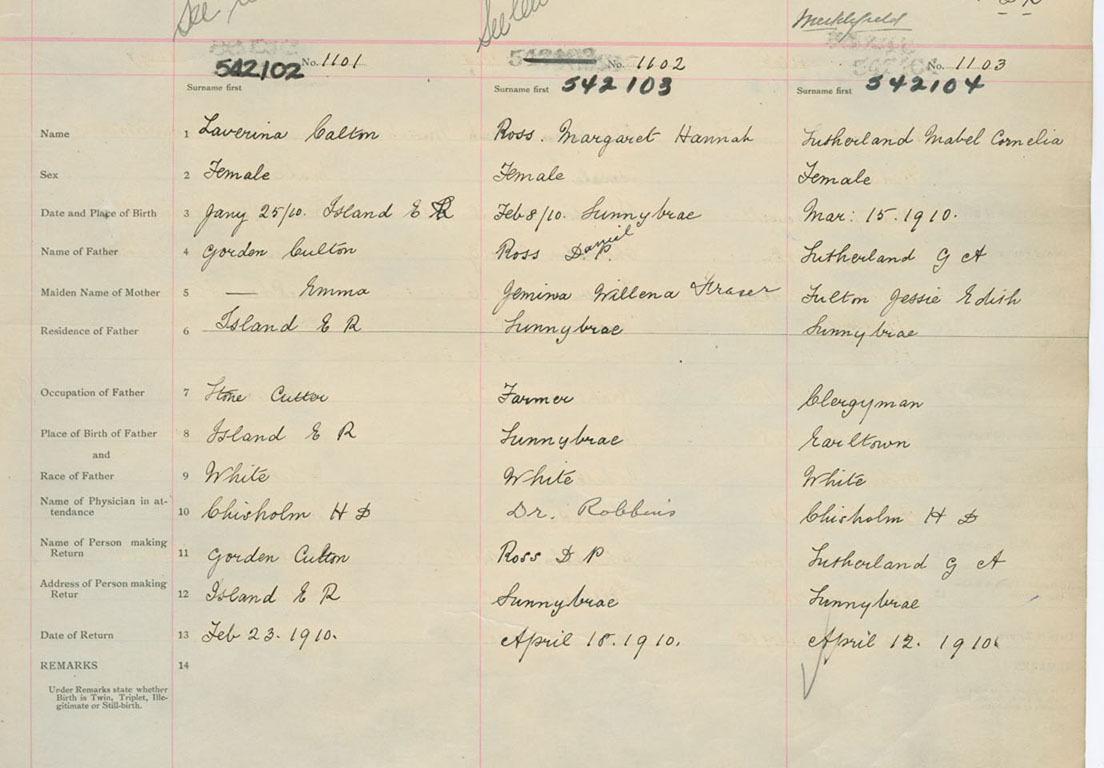 See
See
Micklefield
No. 1101
No. 1102
No. 1103
542102
542103
542104
Surname first
Surname first
Surname first
Name 1 Laverina Calton Ross. Margaret Hannah Sutherland Mabel Cornelia
Sex 2 Female Female Female
Date and Place of Birth 3 Jany 25/10. Island E R Feb 8/10. Sunnybrae Mar: 15.1910.
Name of Father 4 Gorden Culton Ross D Daniel P. Sutherland G A
Maiden Name of Mother 5 — Emma Jemima Willena Fraser Fulton Jessie Edith
Residence of Father 6 Island E R Sunnybrae Sunnybrae
Occupation of Father 7 Stone Cutter Farmer Clergyman
Place of Birth of Father 8 Island E R Sunnybrae Earltown
and
Race of Father 9 White White White
Name of Physician in at-
tendance 10 Chisholm H D Dr. Robbins Chisholm H D
Name of Person making
Return 11 Gorden Culton Ross D P Sutherland G A
Address of Person making
Retur 12 Island E R Sunnybrae Sunnybrae
Date of Return 13 Feb 23. 1910. April 18. 1910. April 12. 1910.
REMARKS 14
Under Remarks state whether
Birth is Twin, Triplet, Ille-
gitimate or Still-birth.